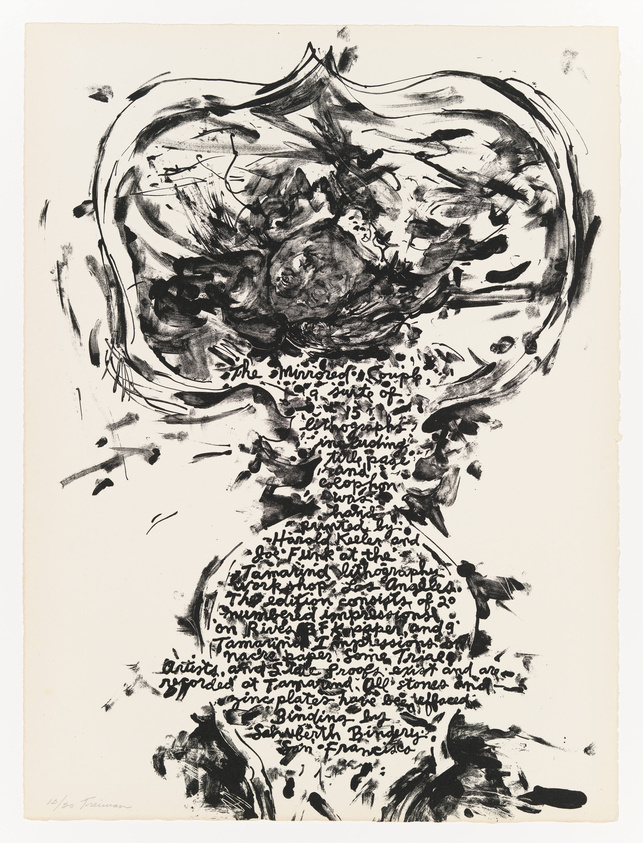 The Mirrored Couple
a suite of
15
lithographs
including
title page
and
colophon
was
hand
printed by
Harold Keeler and
Joe Funk at the
Tamarind Lithography
Workshop Los Angeles.
The edition consists of 20
numbered impressions
on Rives BFK paper, and 9
Tamarind Impressions on
nacre paper. Some Trial,
Artists, and State Proofs exist and are
recorded at Tamarind. All stones and
zinc plates have been effaced.
Binding by
Schuberth Bindery.
San Francisco